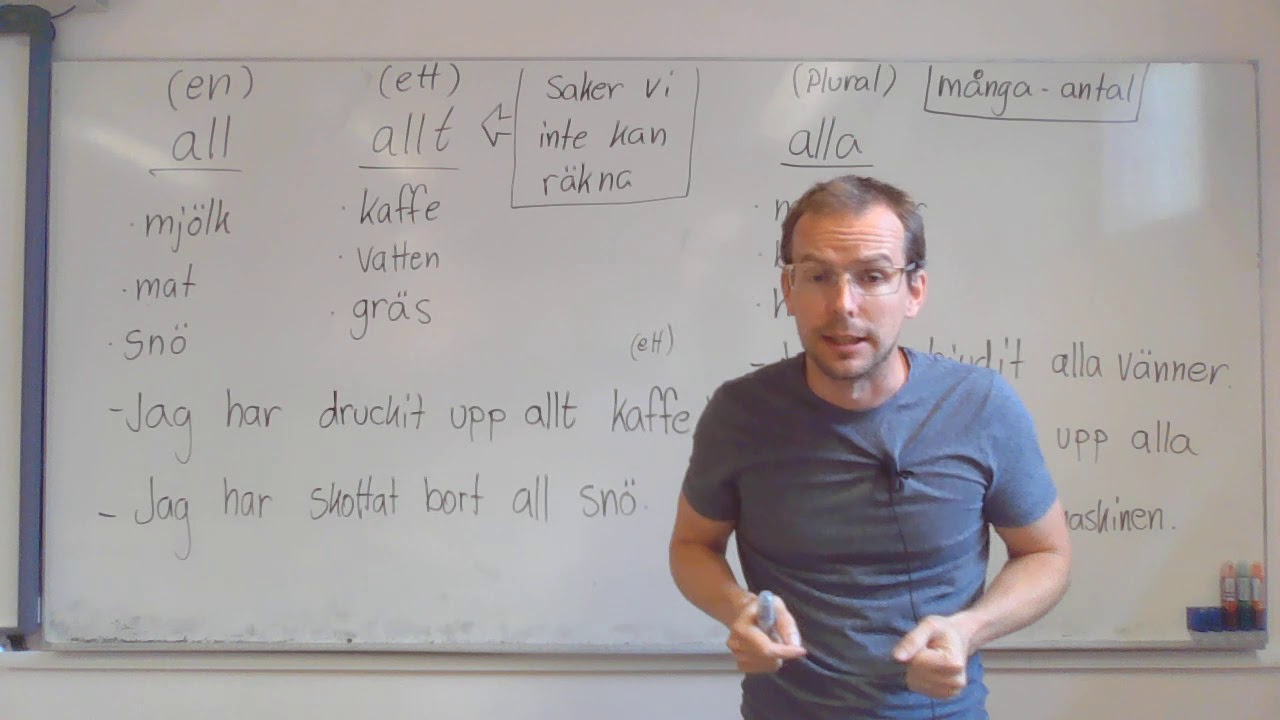 (en)
all
· mjölk
· mat
· snö
(ett)
allt
· kaffe
· vatten
· gräs
Saker vi
inte kan
räkna
(plural)
många - antal
alla
(ett)
- Jag har druckit upp allt kaffe
- Jag har skottat bort all snö.
alla vänner.
upp alla